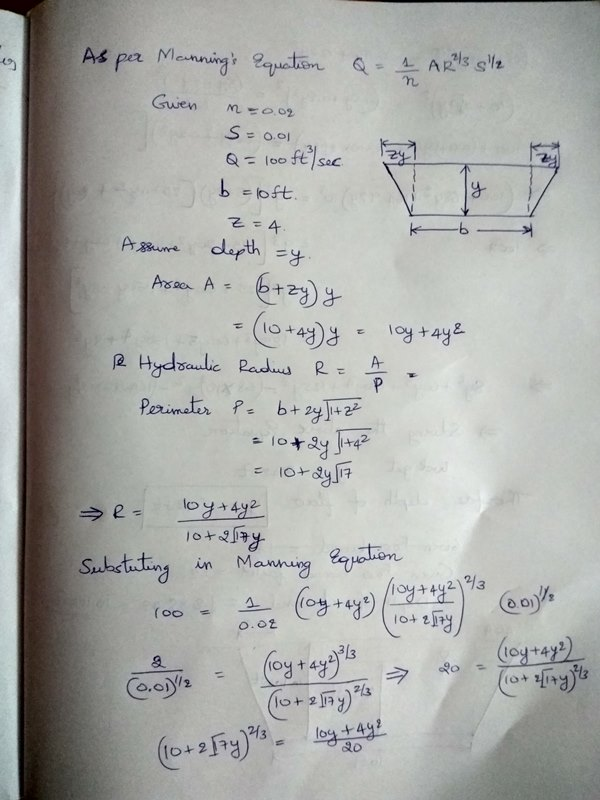 As per Manning's Equation Q = 1/n AR^2/3 S^1/2
Given n = 0.02
S = 0.01
Q = 100 ft³/sec
b = 10 ft.
z = 4.
zy zy
y
b
Assume depth = y.
Area A = (b + zy) y
= (10 + 4y) y = 10y + 4y²
R Hydraulic Radius R = A/P =
Perimeter P = b + 2y √1+z²
= 10 + 2y √1+4²
= 10 + 2y√17
⇒ R = (10y + 4y²)/(10 + 2√17y)
Substuting in Manning Equation
100 = 1/0.02 (10y + 4y²) ((10y + 4y²)/(10 + 2√17y))^2/3 (0.01)^1/2
2/(0.01)^1/2 = (10y + 4y²)^3/3/(10 + 2√17y)^2/3 ⇒ 20 = (10y + 4y²)/(10 + 2√17y)^2/3
(10 + 2√17y)^2/3 = (10y + 4y²)/20